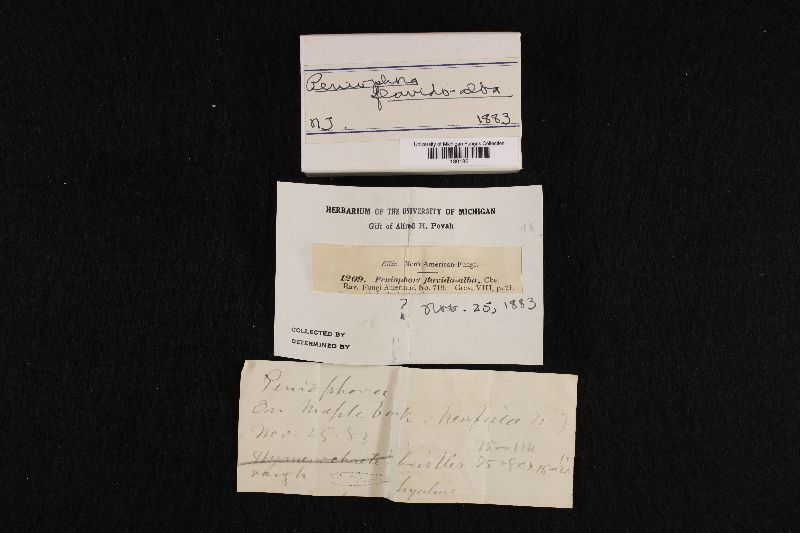 Peniophora
flavido-alba
NJ. 1883
University of Michigan Fungus Collection
HERBARIUM OF THE UNIVERSITY OF MICHIGAN
Gift of Alfred H. Povah
Ellis, North American Fungi.
1209. Peniophora flavido-alba, Cke.
Rav. Fungi American, No. 718. Grev. VIII, p. 21.
? Nov. 25, 1883
COLLECTED BY
DETERMINED BY
Peniophora
On Maple bark. Newfield N.J
Nov. 25-83
75-114
Hymenochaete bristles 75-80 x 15-20
rough
hyaline